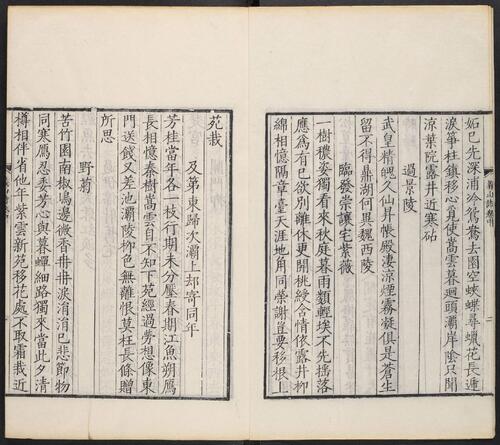 妬已先深浦冷鴛鴦去園空蛺蝶尋蠟花長遞
淚箏柱鎮移心覓使嵩雲暮迴頭灞岸陰只聞
涼葉院露井近寒砧
過景陵
武皇精魄久仙昇帳殿淒涼煙霧凝俱是蒼生
留不得鼎湖何異魏西陵
臨發崇讓宅紫薇
一樹穠姿獨看來秋庭暮雨類輕埃不先搖落
應爲有已欲別離休更開桃綬含情依露井柳
綿相憶隔章臺天涯地角同榮謝豈要移根上
苑栽
及第東歸次灞上却寄同年
芳桂當年各一枝行期未分壓春期江魚朔鴈
長相憶秦樹嵩雲自不知下苑經過勞想像東
門送餞又差池灞陵柳色無離恨莫枉長條贈
所思
野菊
苦竹園南椒塢邊微香冉冉淚涓涓已悲節物
同寒鴈忍委芳心與暮蟬細路獨來當此夕清
樽相伴省他年紫雲新苑移花處不取霜栽近